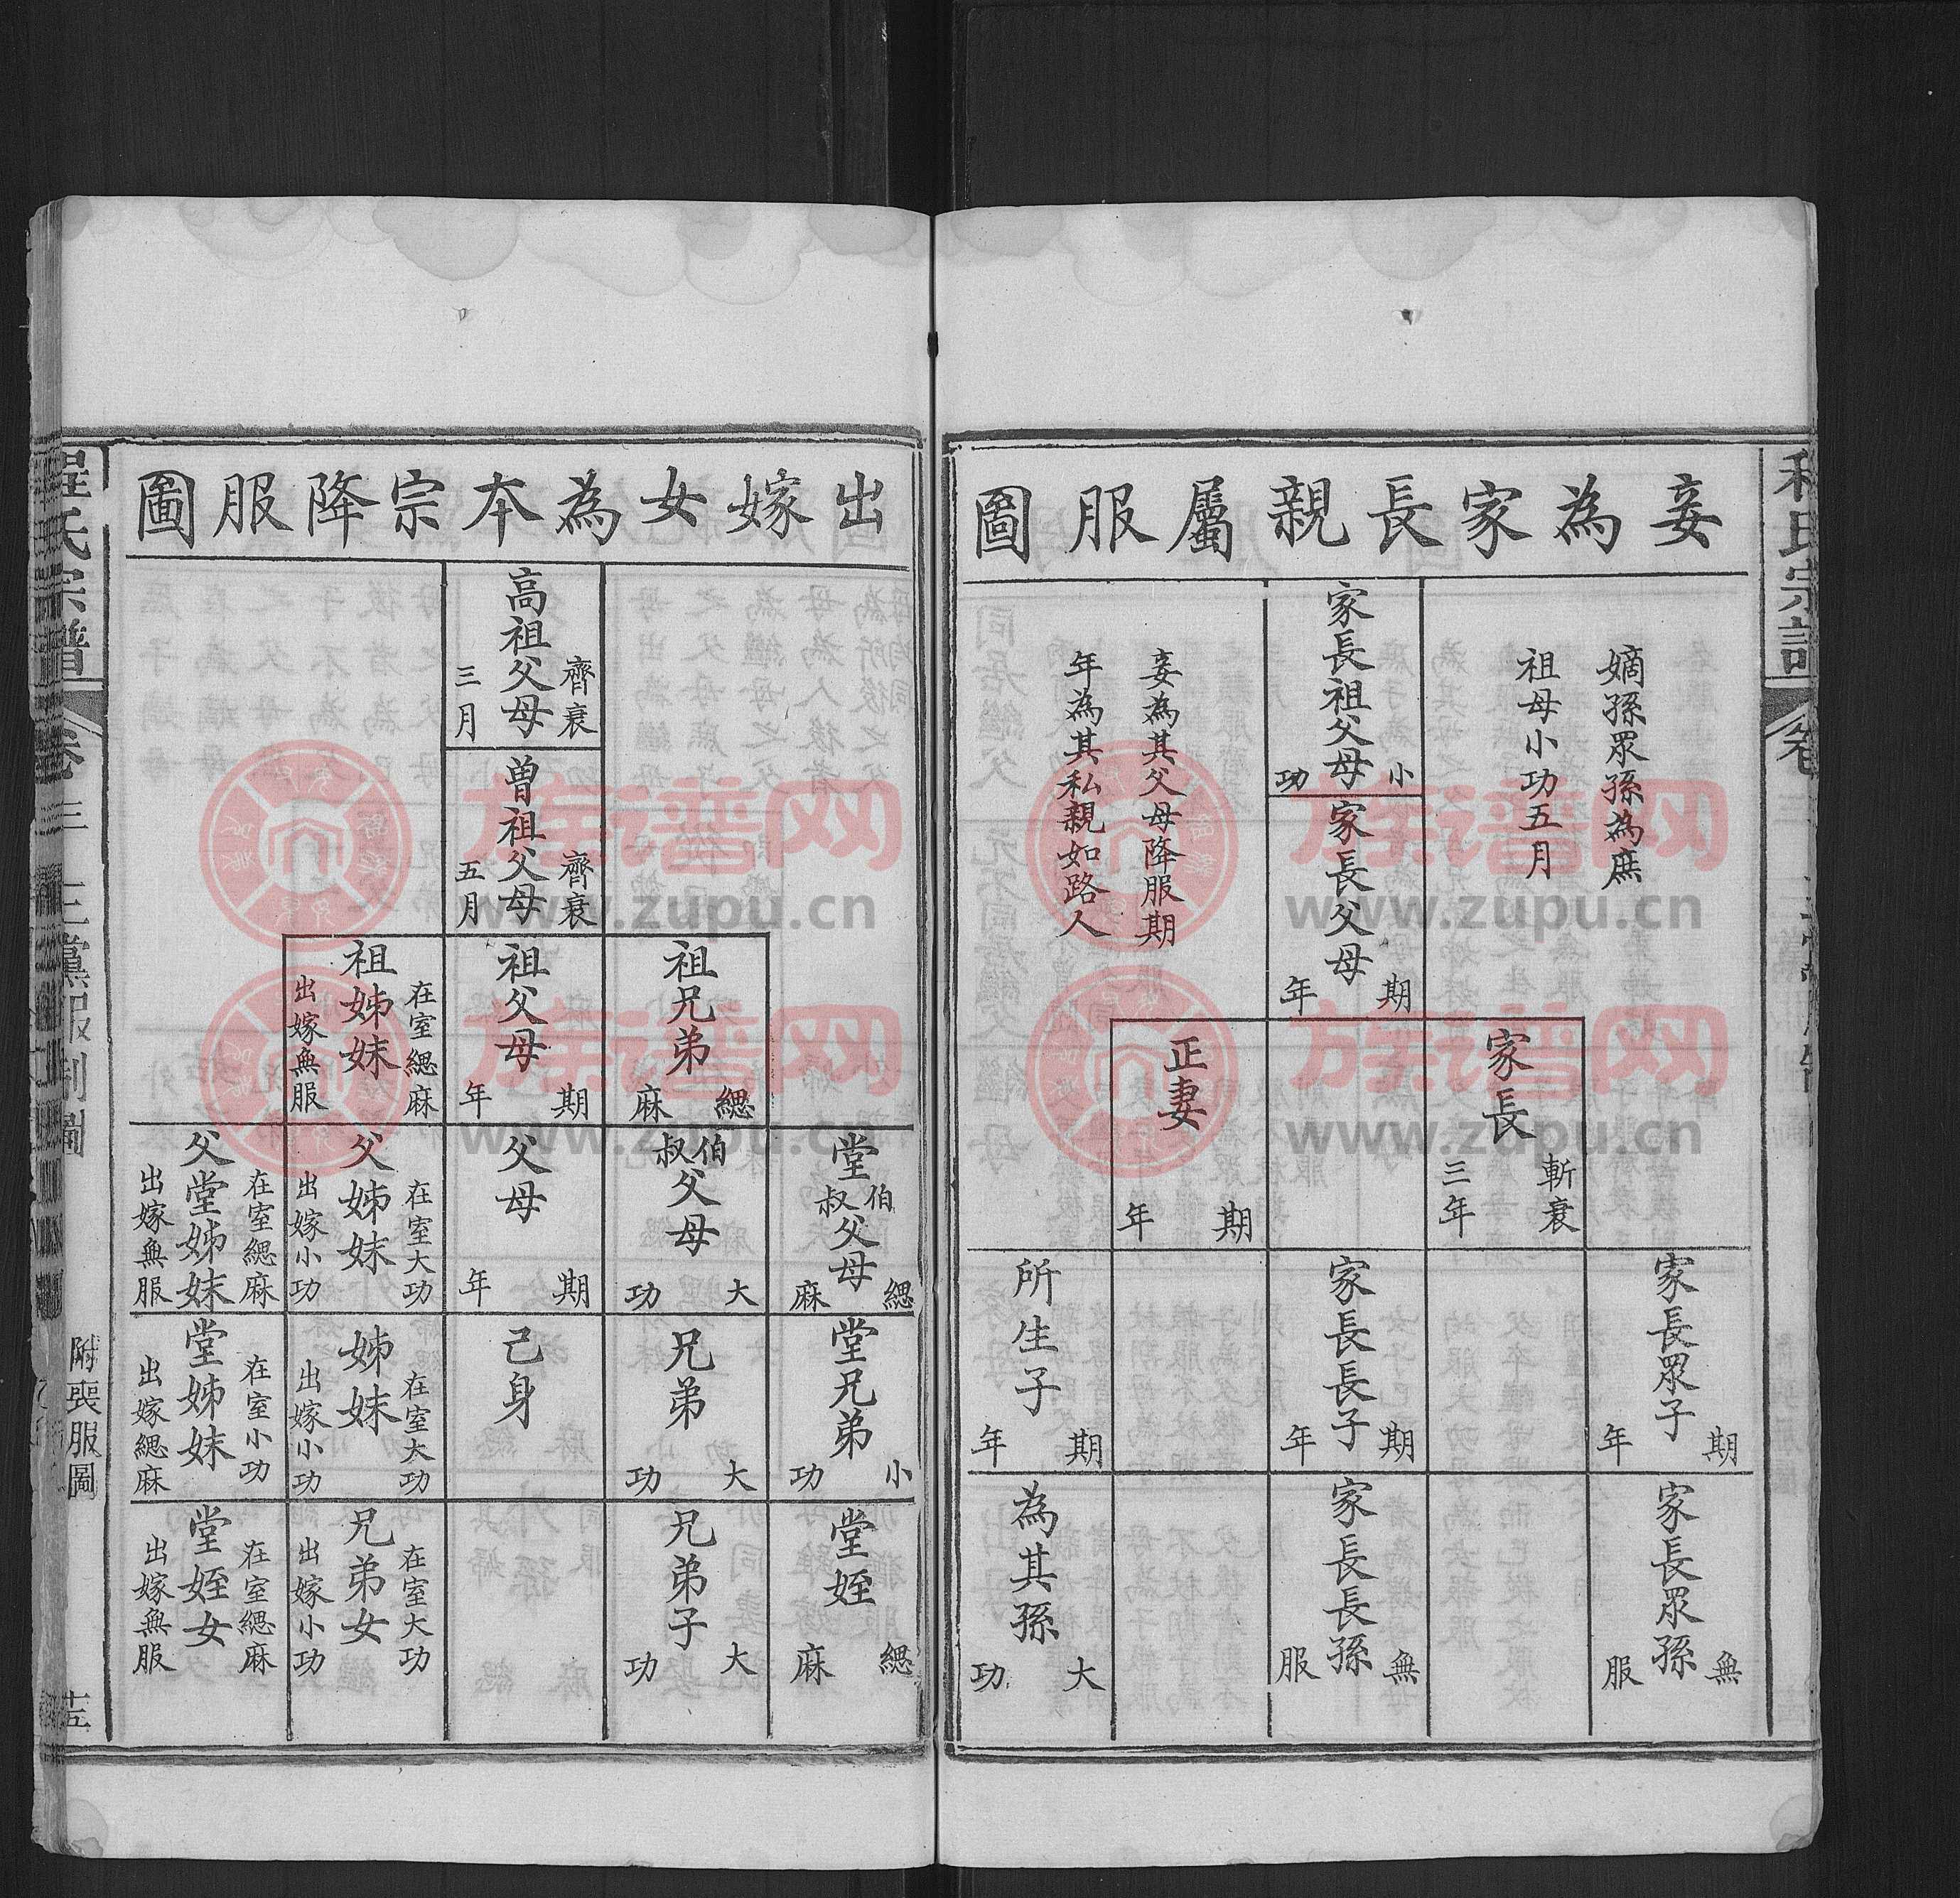 妾為家長親屬服圖
嫡孫眾孫為庶
祖母小功五月
家長祖父母 小功
妾為其父母降服期
年為其私親如路人
家長父母 期年
家長 斬衰三年
正妻 期年
家長眾子 期年
家長長子 期年
所生子 期年
家長眾孫 無服
家長長孫 無服
為其孫 大功
出嫁女為本宗降服圖
高祖父母 齊衰三月
曾祖父母 齊衰五月
祖兄弟 緦麻
祖父母 期年
祖姊妹 在室緦麻 出嫁無服
堂伯叔父母 緦麻
伯叔父母 大功
父母 期年
父姊妹 在室大功 出嫁小功
父堂姊妹 在室緦麻 出嫁無服
堂兄弟 小功
兄弟 大功
己身
姊妹 在室大功 出嫁小功
堂姊妹 在室小功 出嫁緦麻
堂姪 緦麻
兄弟子 大功
兄弟女 在室大功 出嫁小功
堂姪女 在室緦麻 出嫁無服
程氏宗譜
卷三
三黨服制圖
附喪服圖
十五
族譜网
www.zupu.cn
族譜网
www.zupu.cn
族譜网
www.zupu.cn
族譜网
www.zupu.cn